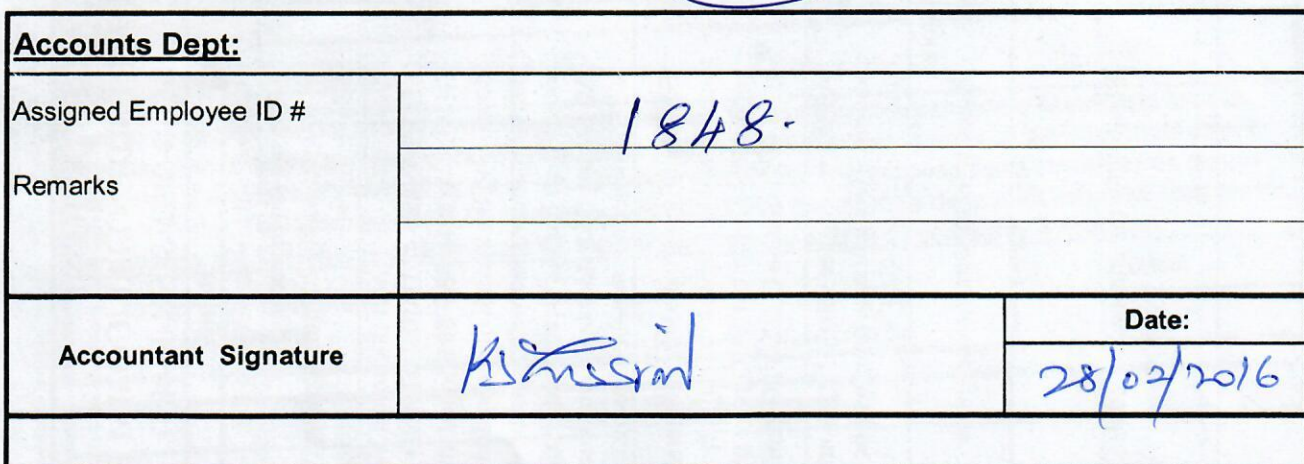 Accounts Dept:
Assigned Employee ID #
1848.
Remarks
Accountant Signature
Date:
28/02/2016